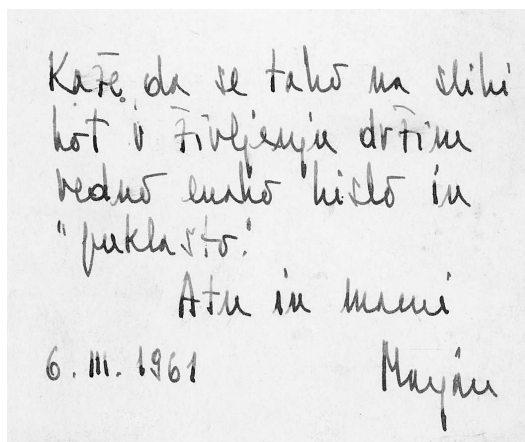 Kaže, da se tako na sliki
kot v življenju držim
vedno enako kislo in
"puklasto."
Atu in mami
6. III. 1961 Marjan